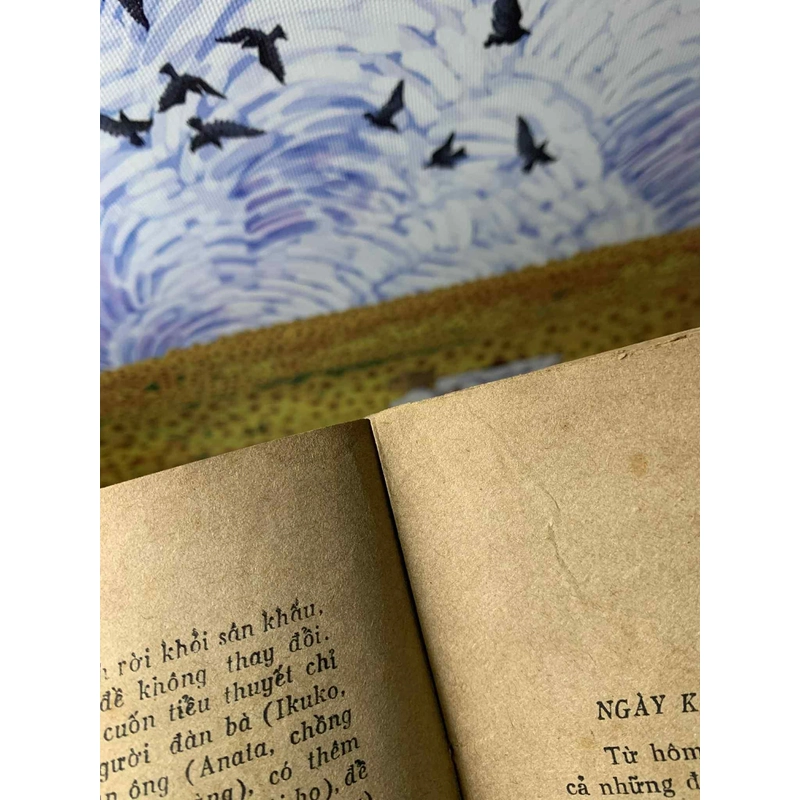 rời khỏi sân khấu,
đề không thay đổi.
cuốn tiểu thuyết chỉ
gười đàn bà (Ikuko,
n ông (Anata, chồng
àng), có thêm
ho), đề
NGÀY K
Từ hôm
cả những đ